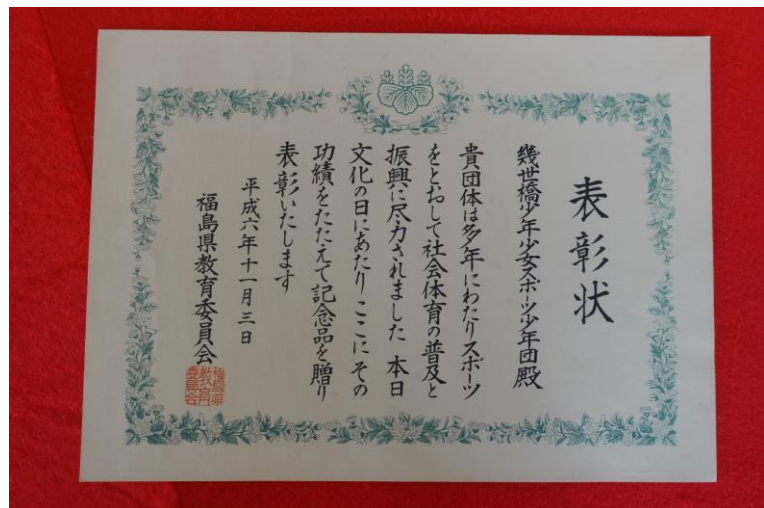 表彰状
幾世橋少年少女スポーツ少年団殿
貴団体は多年にわたりスポーツ
をとおして社会体育の普及と
振興に尽力されました 本日
文化の日にあたり ここに その
功績をたたえて記念品を贈り
表彰いたします
平成六年十一月三日
福島県教育委員会
福島県
教育
委員会